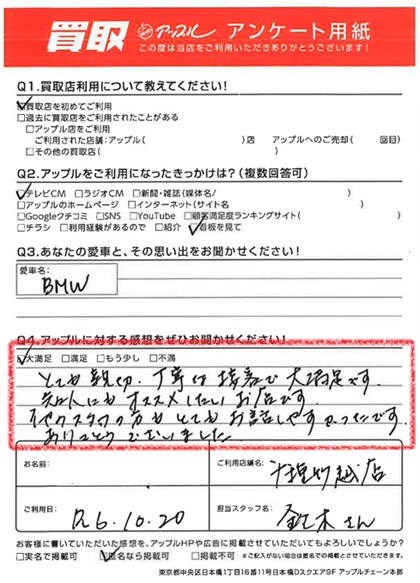 買取 アップル アンケート用紙
この度は当店をご利用いただきありがとうございます!
Q1.買取店利用について教えてください!
☑買取店を初めてご利用
□過去に買取店をご利用されたことがある
□アップル店をご利用
ご利用された店舗:アップル( )店 アップルへのご売却( 回目)
□その他の買取店( )
Q2.アップルをご利用になったきっかけは?(複数回答可)
☑テレビCM □ラジオCM □新聞・雑誌(媒体名/ )
□アップルのホームページ □インターネット(サイト名 )
□Googleクチコミ □SNS □YouTube □顧客満足度ランキングサイト( )
□チラシ □利用経験があるので □紹介 ☑看板を見て
Q3.あなたの愛車と、その思い出をお聞かせください!
愛車名:
BMW
Q4.アップルに対する感想をぜひお聞かせください!
☑大満足 □満足 □もう少し □不満
とても親切、丁寧な接客で大満足です。
知人にもオススメしたいお店です。
スタッフの方もとてもお話しやすかったです。
ありがとうございました。
お名前:
ご利用店舗名:
店
ご利用日:
R6.10.20
担当スタッフ名:
鈴木さん
お客様に書いていただいた感想を、アップルHPや広告に掲載させていただいてもよろしいでしょうか?
□実名で掲載可 ☑匿名なら掲載可 □掲載不可 ※ご記入がない場合は匿名での掲載とさせていただきます。
東京都中央区日本橋1丁目16番11号日本橋DスクエアSF アップルチェーン本部